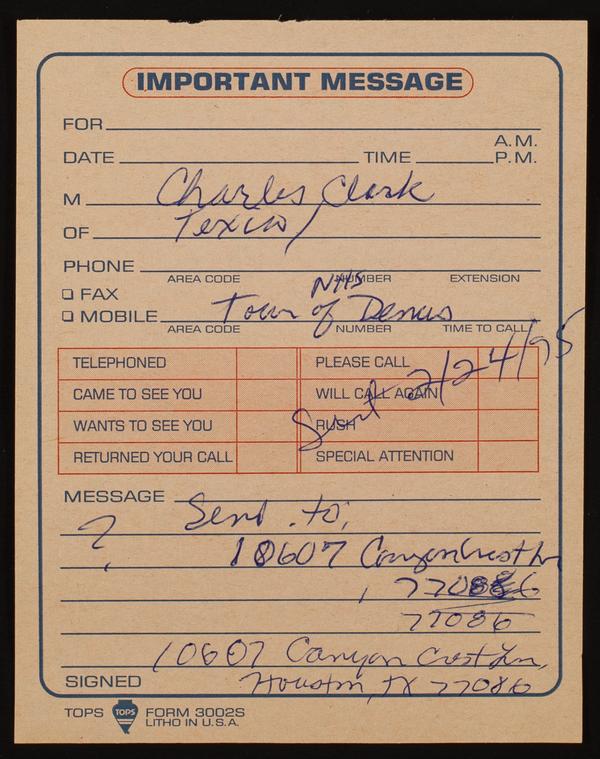 IMPORTANT MESSAGE
FOR
A.M.
DATE TIME P.M.
M Charles Clark
OF Texas,
PHONE
AREA CODE NUMBER EXTENSION
NHS
FAX
MOBILE Tour of
AREA CODE NUMBER TIME TO CALL
TELEPHONED PLEASE CALL
CAME TO SEE YOU WILL CALL AGAIN
WANTS TO SEE YOU RUSH
RETURNED YOUR CALL SPECIAL ATTENTION
Sent 2/24/95
MESSAGE Send to:
? 10607 Canyon Crest Ln
, 77086
77086
10607 Canyon Crest Ln,
SIGNED Houston, TX 77086
TOPS TOPS FORM 3002S
LITHO IN U.S.A.